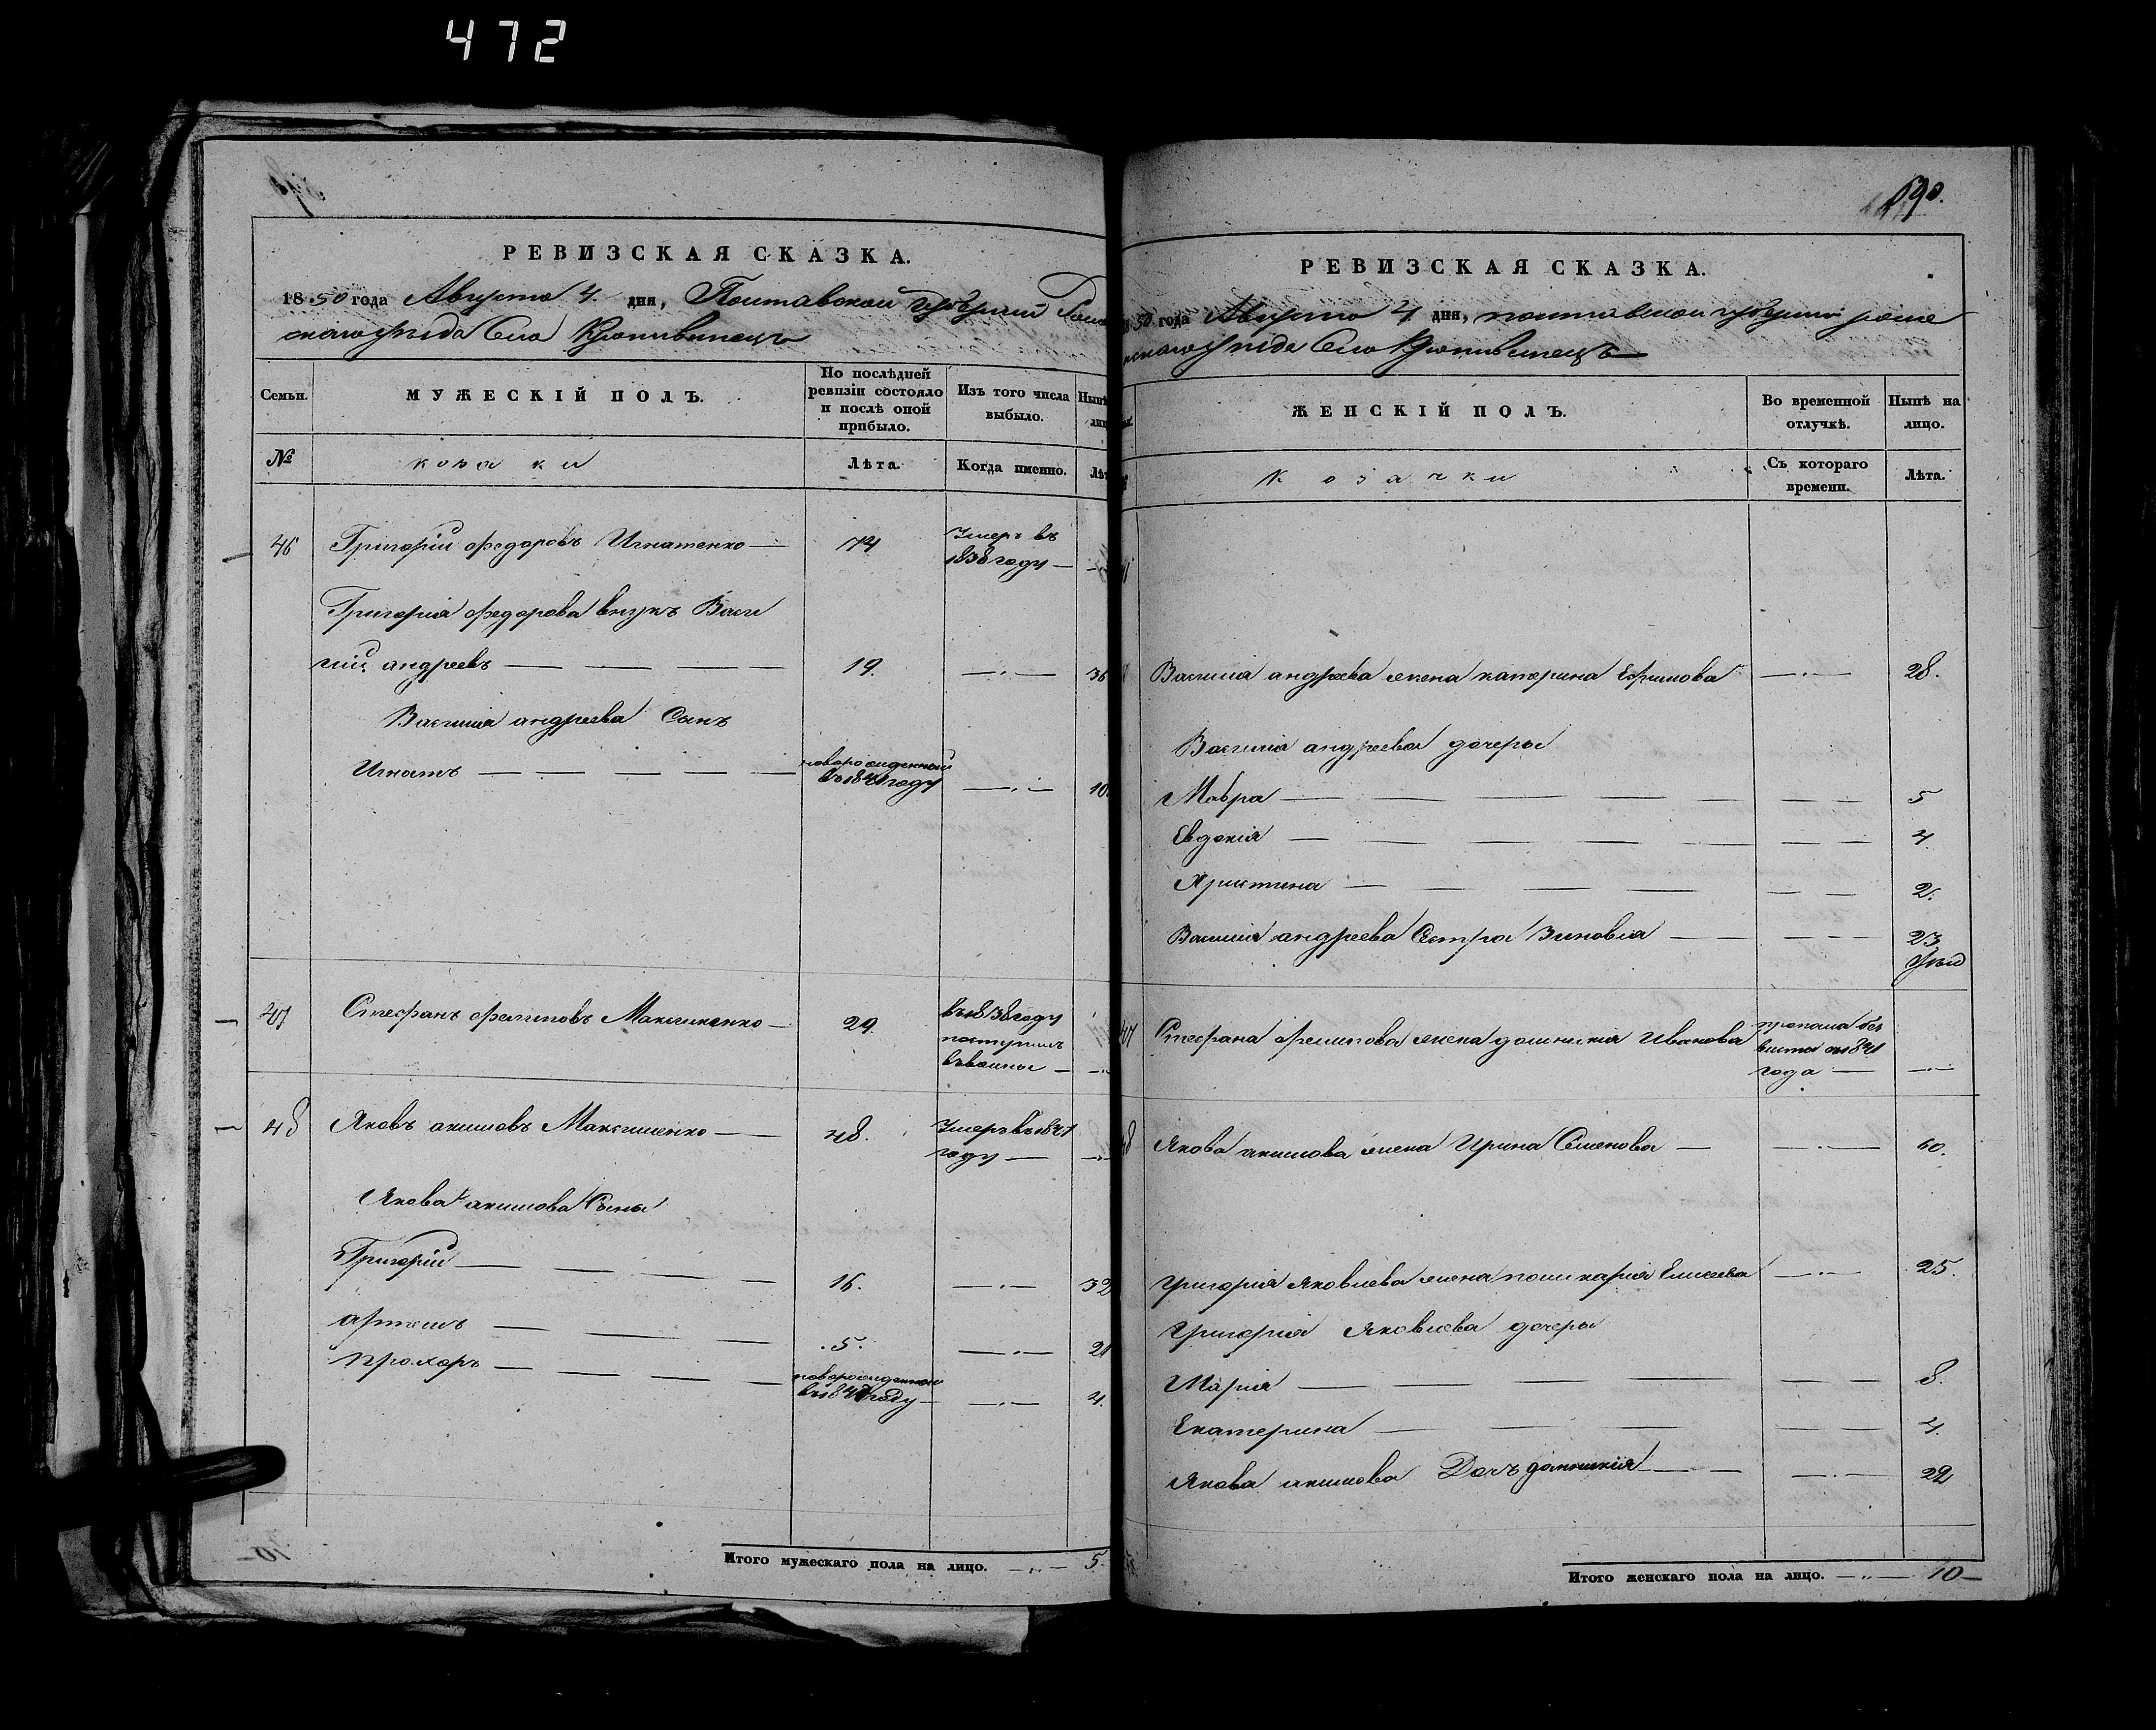 472
РЕВИЗСКАЯ СКАЗКА.
1850 года Августа 4. дня, Полтавской губерніи Роме
нскаго уезда Село Кропивинецъ
Семьи.
МУЖЕСКІЙ ПОЛЪ.
По послѣдней ревизіи состояло и послѣ оной прибыло.
Изъ того числа выбыло.
Нынѣ
№
козаки
Лѣта.
Когда именно.
46 Григорій федоровъ Игнатенко — 74 Умеръ въ
1838 году —
Григорія федорова внукъ Васи
лій андреевъ — — — — 19. —.— 36
Василія андреева Сынъ
Игнатъ — — — — — новорожденный
въ 1840 году —.— 10.
47 Стефанъ филиповъ Максименко — 29. въ 1838 году
поступилъ
въ военное —
48 Яковъ акимовъ Максименко — 48. Умеръ въ 1841
году —
Якова акимова Сыны
Григорій — — — — 16. —.— 32
артемъ — — — .5. —.— 21
прохоръ — — — — новорожденный
въ 1847 году — —.— 4.
Итого мужескаго пола на лицо. —„— 5.
690.
РЕВИЗСКАЯ СКАЗКА.
50 года Августа 4 дня, полтавской губерніи роме
нскаго уезда Село Кропивинецъ —
ЖЕНСКІЙ ПОЛЪ.
Во временной отлучкѣ.
Нынѣ на лицо.
Козачки
Съ котораго времени.
Лѣта.
Василія андреева жена катерина Ефимова —.— 28.
Василія андреева дочеры
Мавра — — — — — — — 5
Евдокія — — — — — — — 4
Христина — — — — — — 2.
Василія андреева Сестра Зиновія — — — 23
47 Стефана филипова жена домникія Иванова пропала без
вести съ 1841
года — —.—
48 Якова акимова жена Ирина Семенова — —.— 60.
григорія яковлева жена поликарія Елисеева —.— 25.
григорія яковлева дочеры
Марія — — — — — 8.
Екатерина — — — — — 4.
Якова акимова Дочь домникія — — —.— 22
Итого женскаго пола на лицо. —„— 10—